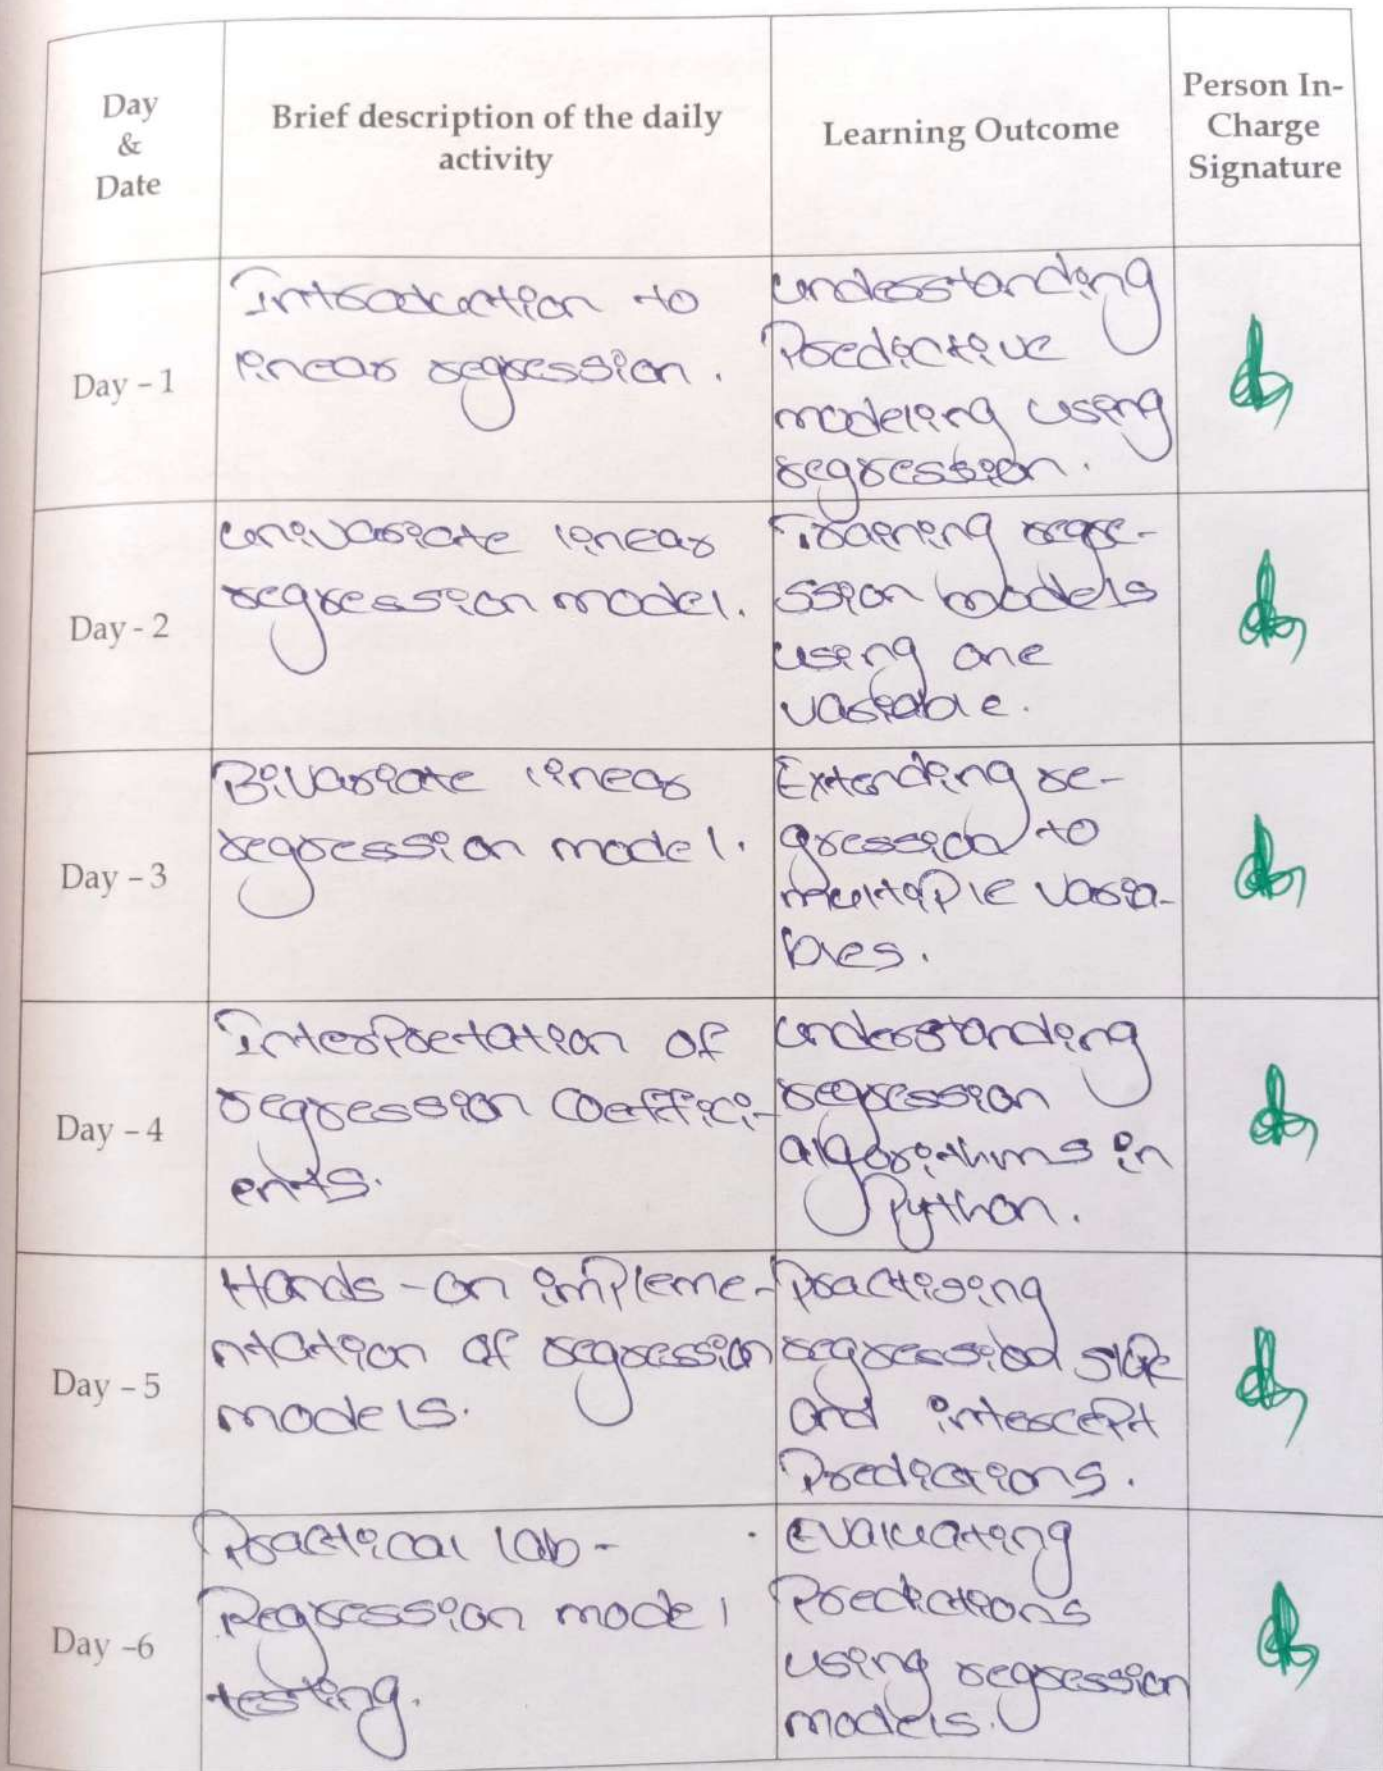 Day
&
Date
Brief description of the daily
activity
Learning Outcome
Person In-
Charge
Signature
Day - 1
Introduction to
linear regression.
understanding
Predictive
modeling using
regression.
Day - 2
univariate linear
regression model.
Training regre-
ssion models
using one
variable.
Day - 3
Bivariate linear
regression model.
Extending re-
gression to
multiple varia-
bles.
Day - 4
Interpretation of
regression coeffici-
ents.
understanding
regression
algorithms in
Python.
Day - 5
Hands-on impleme-
ntation of regression
models.
Practising
regression slope
and intercept
Predictions.
Day -6
Practical lab-
Regression model
testing.
Evaluating
Predictions
using regression
models.